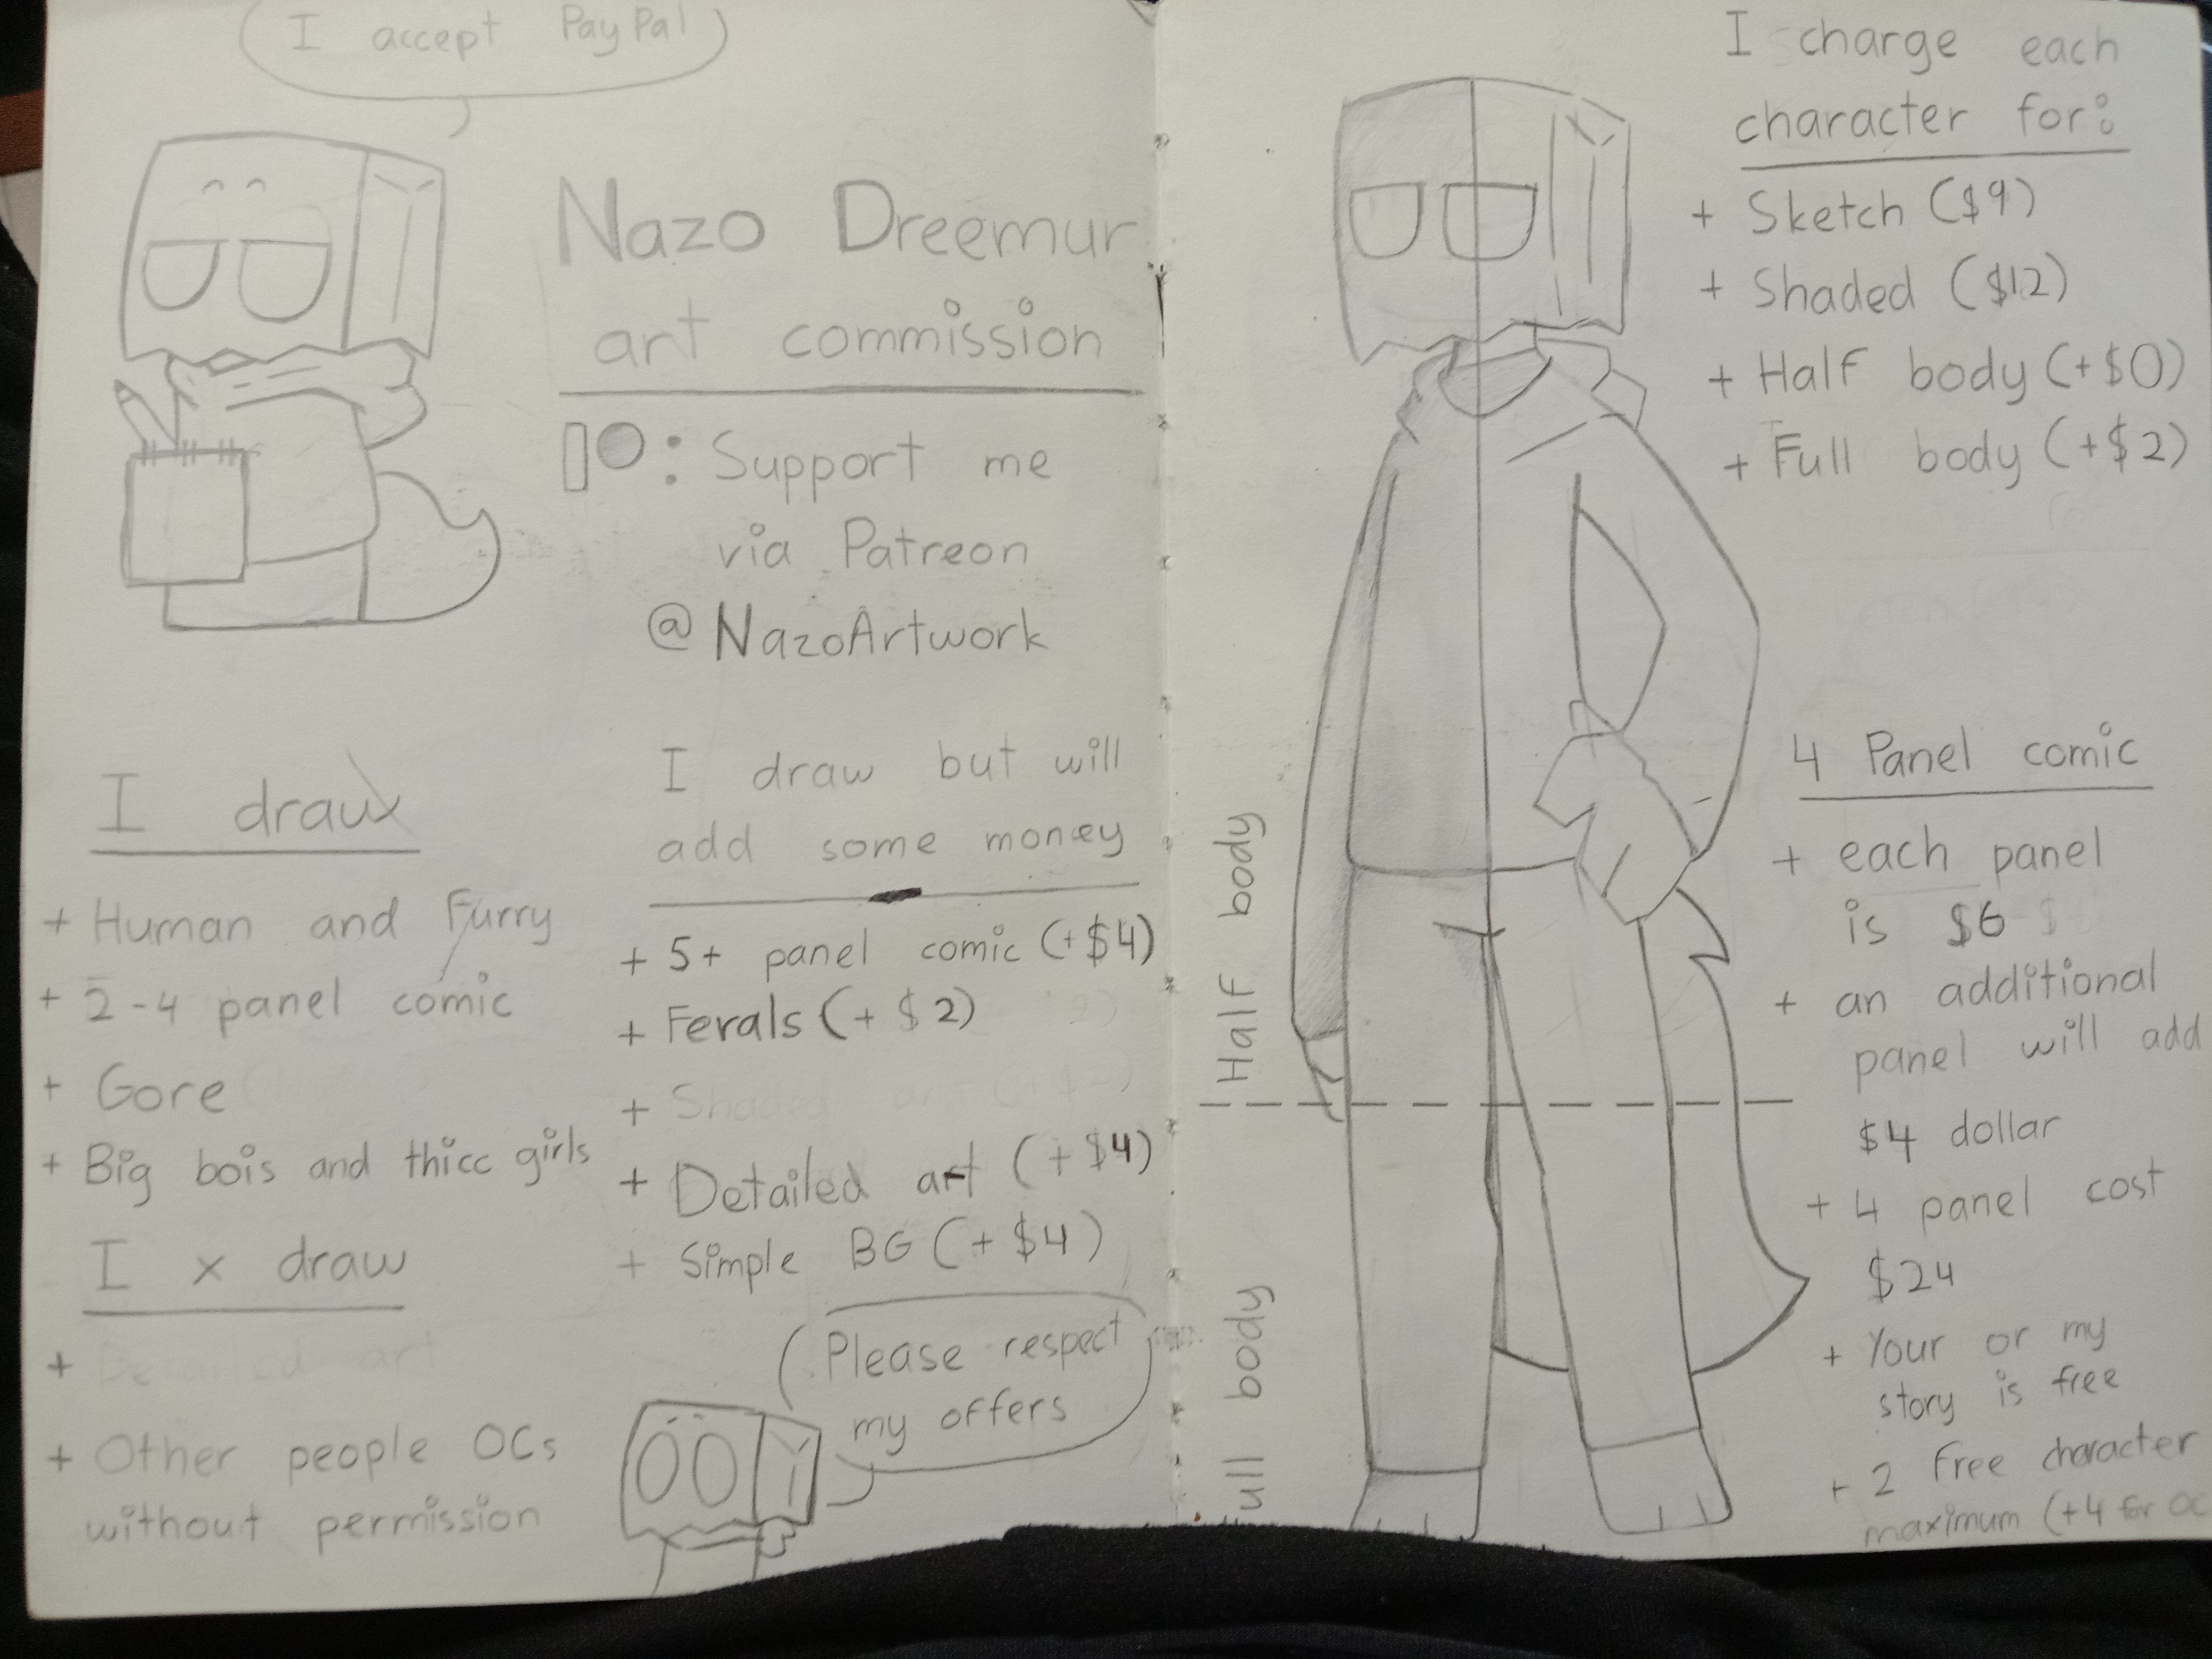 I accept PayPal
Nazo Dreemur
art commission
: Support me
via Patreon
@NazoArtwork
I draw
+ Human and Furry
+ 2-4 panel comic
+ Gore
+ Big bois and thicc girls
I x draw
+ Detailed art
+ Other people OCs
without permission
I draw but will
add some money
+ 5+ panel comic (+$4)
+ Ferals (+$2)
+ Shaded
+ Detailed art (+$4)
+ Simple BG (+$4)
Please respect
my offers
Half body
full body
I charge each
character for:
+ Sketch ($9)
+ Shaded ($12)
+ Half body (+$0)
+ Full body (+$2)
4 Panel comic
+ each panel
is $6
+ an additional
panel will add
$4 dollar
+ 4 panel cost
$24
+ Your or my
story is free
+ 2 free character
maximum (+4 for OC